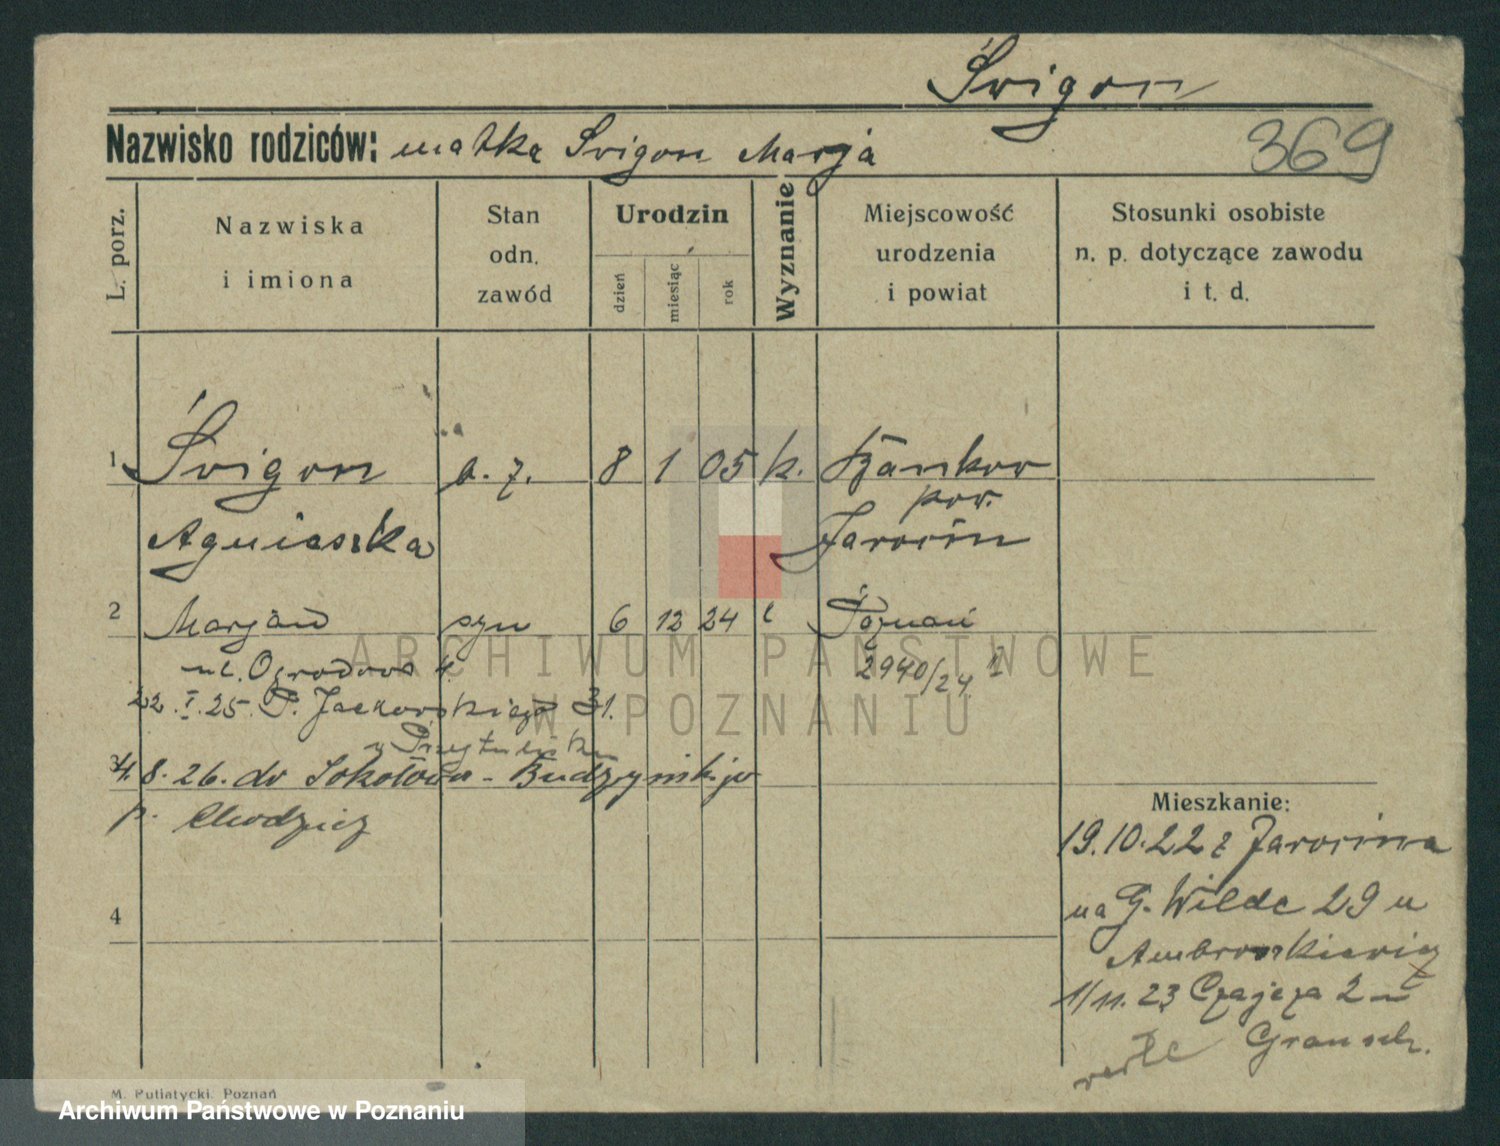 Śrigon
Nazwisko rodziców: matka Śrigon Marja
369
L. porz.
Nazwiska
i imiona
Stan
odn.
zawód
Urodzin
dzień
miesiąc
rok
Wyznanie
Miejscowość
urodzenia
i powiat
Stosunki osobiste
n. p. dotyczące zawodu
i t. d.
1 Śrigon 8 1 05 k.
pow.
Agnieszka Jarocin
2 Marjan syn 6 12 24 Poznań
ul. Ogrodowa 4. 2940/24
22.I.25. P. Jackowskiego 31.
4. 8. 26. do Sokołowa - Budzyńskiego
p. Chodzież
Mieszkanie:
19.10.22 z Jarocina
na G. Wilde 29 u
Ambroszkiewicz
1/11. 23 Czajcza 2
4
ARCHIWUM PAŃSTWOWE
W POZNANIU
M. Putiatycki. Poznań
Archiwum Państwowe w Poznaniu